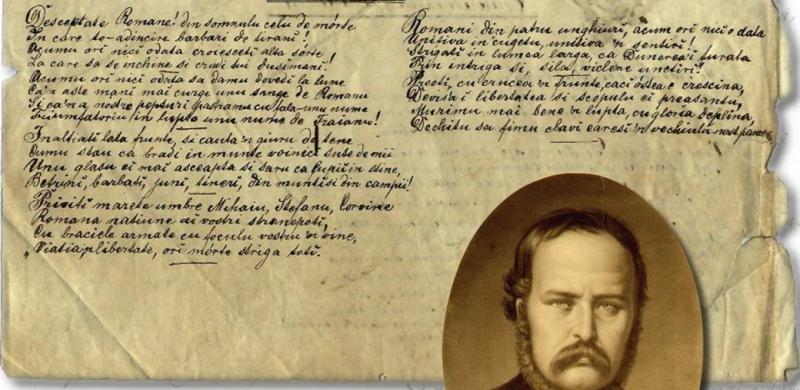 Desceptate Romane! din somnulu celu de morte
In care te-adincire barbari de tirani!
Acumu ori nici odata croiesceti alta sorte
La care sa se inchine si crudi tui dusimani!
Acumu ori nici odata sa damu dovedi la lume
Ca'n aste mani mai curge unu sange de Romanu
Si ca'n a nostre pepturi pastramu cu fala-unu nume
Triumfatoriu in lupte unu nume de Traianu!
Inaltiati lata frunte, si cauta'n giuru de tene
Cumu stau ca bradi in munte voinici sute de mii
Unu glasu ei mai asceapta si saru ca lupii in stine,
Betrini, barbati, juni, tineri, din muntisi din campii!
Priviti marete umbre Mihaiu, Stefanu, Corvine
Romana natiune ai vostri stranepoti,
Cu braciele armate cu foculu vostru'n vine,
"Viatia'n libertate, ori morte striga toti.
Romani din patru unghiuri, acum ori nici o data
Unitiva in cugetu, unitiva'n sentiri!
Strigati in lumea larga, ca Dunerea-i furata
Prin intriga si, sila, viclene unctiri!
Preoti, cu crucea'n frunte, caci óstea e crescina,
Devisa-i libertatea si scopulu ei preasantu,
Murimu mai bene'n lupta, cu gloria deplina,
Dechitu sa fimu clavi earesi'n vechiulu nost